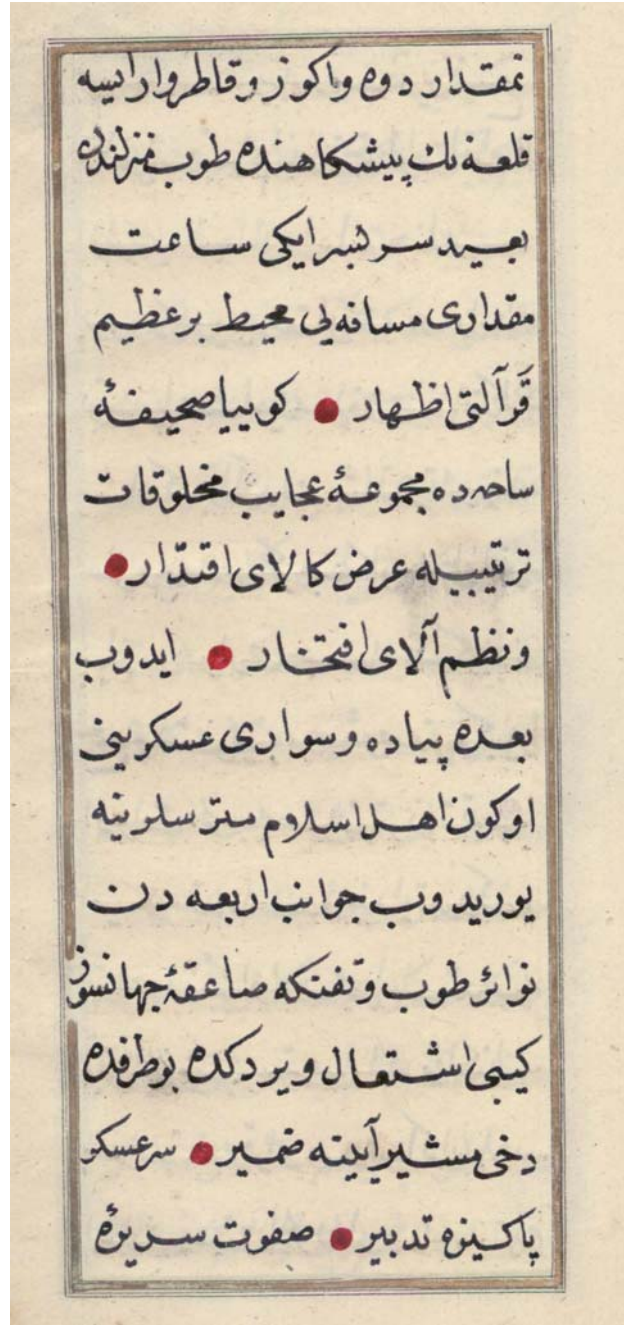 نمقدار دوه واكوز وقاطر وارايسه
قلعه نك پيشكاهنده طوب منزلندن
بعيد سرتسر ايكى ساعت
مقدارى مسافه يى محيط بر عظيم
قرآلتى اظهار ● كوييا صحيفۀ
ساحه ده مجموعۀ عجايب مخلوقات
ترتيبيله عرض كالاى اقتدار ●
ونظم آلاى افتخار ● ايدوب
بعده پياده وسوارى عسكرينى
اوكون اهل اسلام متر سلرينه
يوريدوب جوانب اربعه دن
نوائر طوب وتفنكه صاعقۀ جهانسوز
كيبى اشتعال ويردكده بوطرفده
دخى مشير آيينه ضمير ● سرعسكر
پاكيزه تدبير ● صفوت سريره